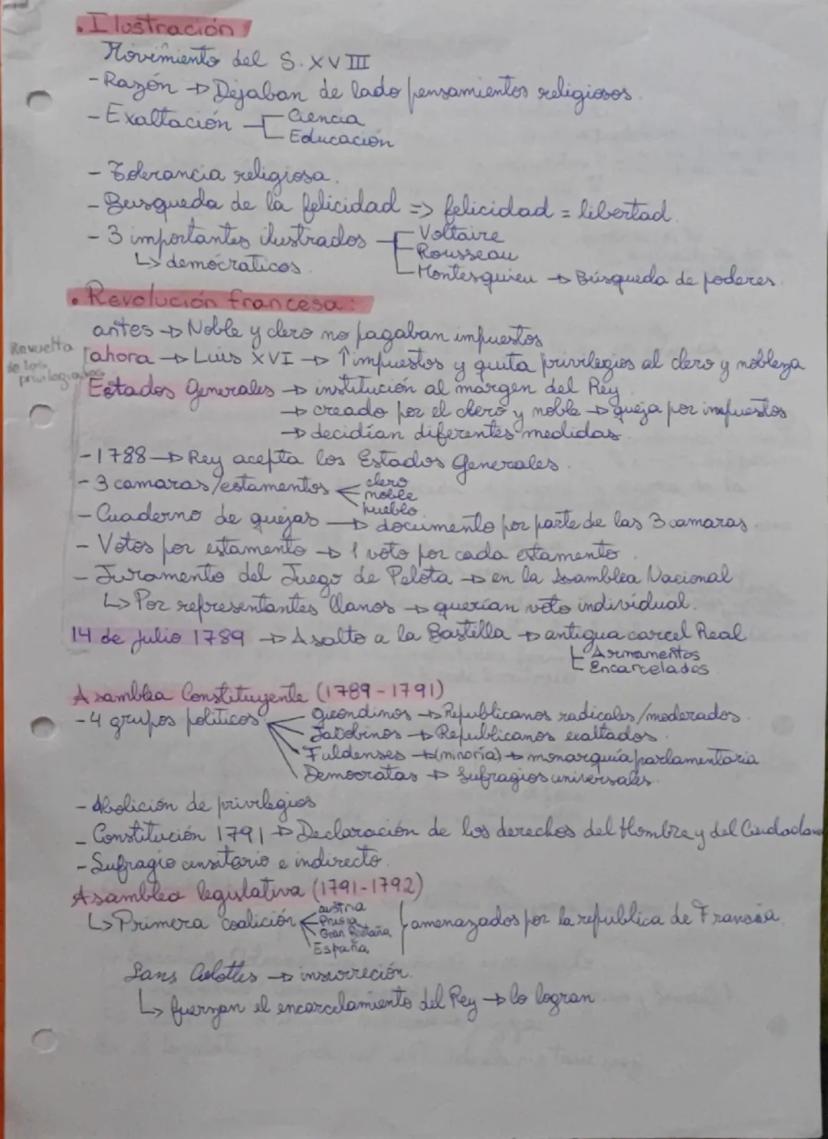 . Ilustración
Movimiento del S. XVIII
- Razón → Dejaban de lado pensamientos religiosos.
- Exaltación Ciencia
Educación
- Tolerancia religiosa.
- Busqueda de la felicidad => felicidad = libertad.
- 3 importantes ilustrados Voltaire
Rousseau
↳ democraticos.
Montesquieu → Búsqueda de poderes.
. Revolución francesa:
antes → Noble y clero no pagaban impuestos
Revuelta de los privilegiados
ahora → Luis XVI → ↑impuestos y quita privilegios al clero y nobleza
Estados Generales → institución al margen del Rey
→ creado por el clero y noble → queja por impuestos
→ decidían diferentes medidas.
- 1788 → Rey acepta los Estados Generales.
- 3 camaras/estamentos clero
noble
pueblo
- Cuaderno de quejas → documento por parte de las 3 camaras.
- Votos por estamento → 1 voto por cada estamento.
- Juramento del Juego de Pelota → en la Asamblea Nacional
↳ Por representantes llanos → querían voto individual.
14 de julio 1789 → Asalto a la Bastilla → antigua carcel Real
Armamentos
Encarcelados
Asamblea Constituyente (1789-1791)
- 4 grupos políticos Girondinos → Republicanos radicales/moderados.
Jacobinos → Republicanos exaltados.
Fuldenses → (minoría) → monarquía parlamentaria
Democratas → Sufragios universales.
- Abolición de privilegios
- Constitución 1791 → Declaración de los derechos del Hombre y del Ciudadano
- Sufragio censitario e indirecto.
Asamblea legislativa (1791-1792)
↳ Primera coalición Austria
Prusia
Gran Bretaña
España
amenazados por la republica de Francia.
Sans Culottes → insurreción.
↳ fuerzan el encarcelamiento del Rey → lo logran